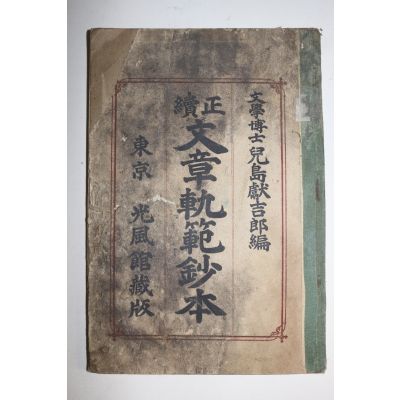 文學博士兒島獻吉郎編
正續
文章軌範鈔本
東京　光風館藏版